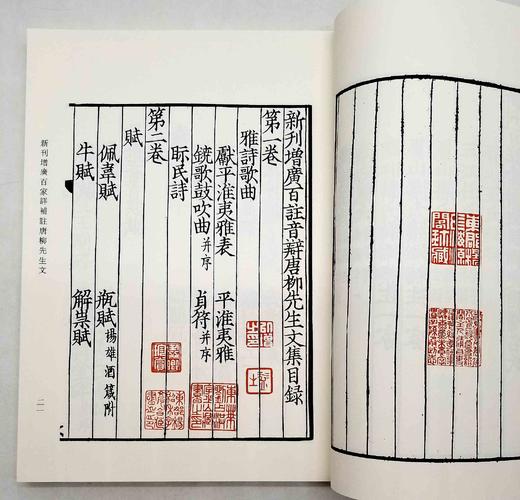 新刊增廣百註音辯唐柳先生文集目錄
第一卷
雅詩歌曲
獻平淮夷雅表 平淮夷雅
鐃歌鼓吹曲并序 貞符并序
眎民詩
第二卷
賦
佩韋賦 瓶賦揚雄酒箴附
牛賦 解祟賦
新刊增廣百家詳補註唐柳先生文
二一